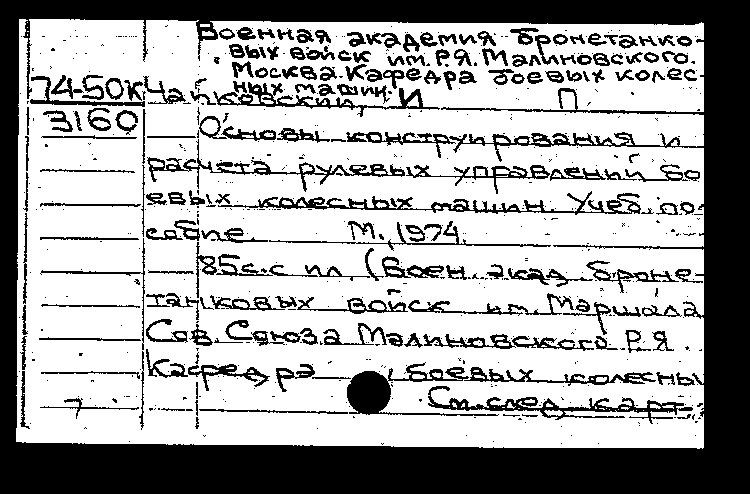 Военная академия бронетанко-
вых войск им. Р.Я. Малиновского.
Москва. Кафедра боевых колес-
ных машин.
74-50к
3160
Чайковский, И П
Основы конструирования и
расчета рулевых управлений бо
евых колесных машин. Учеб. по-
собие. М., 1974.
85с. с ил. (Воен. акад. броне-
танковых войск им. Маршала
Сов. Союза Малиновского Р.Я.
Кафедра боевых колесны
См. след. карт.
7